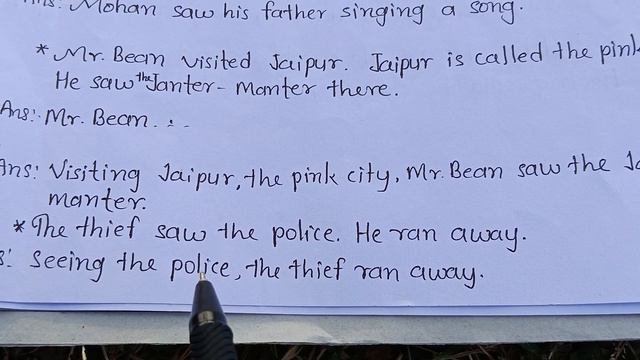 Ans: Mohan saw his father singing a song.
* Mr. Bean visited Jaipur. Jaipur is called the pink
He saw the Janter-Manter there.
Ans: Mr. Bean...
Ans: Visiting Jaipur, the pink city, Mr. Bean saw the Ja
manter.
* The thief saw the police. He ran away.
s: Seeing the police, the thief ran away.